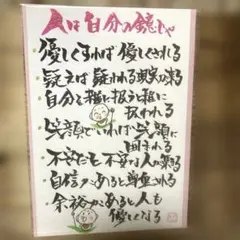 人は自分の鏡じゃ
・優しくすれば 優しくされる
・疑えば 疑われる現実が来る
・自分を雑に扱うと雑に
扱われる
・笑顔でいれば笑顔に
囲まれる
・不安だと 不安な人が集る
・自信があると尊重される
・余裕があると人も
優しくなる